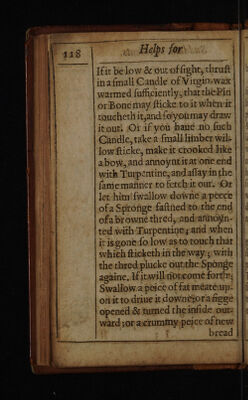 118 Helps for
If it be low & out of sight, thrust
in a small Candle of Virgin wax
warmed sufficiently, that the Pin
or Bone may sticke to it when it
toucheth it, and so you may draw
it out. Or if you haue no such
Candle, take a small limber wil-
low sticke, make it crooked like
a bow, and annoynt it at one end
with Turpentine, and assay in the
same manner to fetch it out. Or
let him swallow downe a peece
of a Sponge fastned to the end
of a browne thred, and annoyn-
ted with Turpentine; and when
it is gone so low as to touch that
which sticketh in the way, with
the thred plucke out the Sponge
againe. If it will not come forth,
Swallow a peice of fat meate up-
on it to driue it downe; or a figge
opened & turned the inside out-
ward; or a crummy peice of new
bread